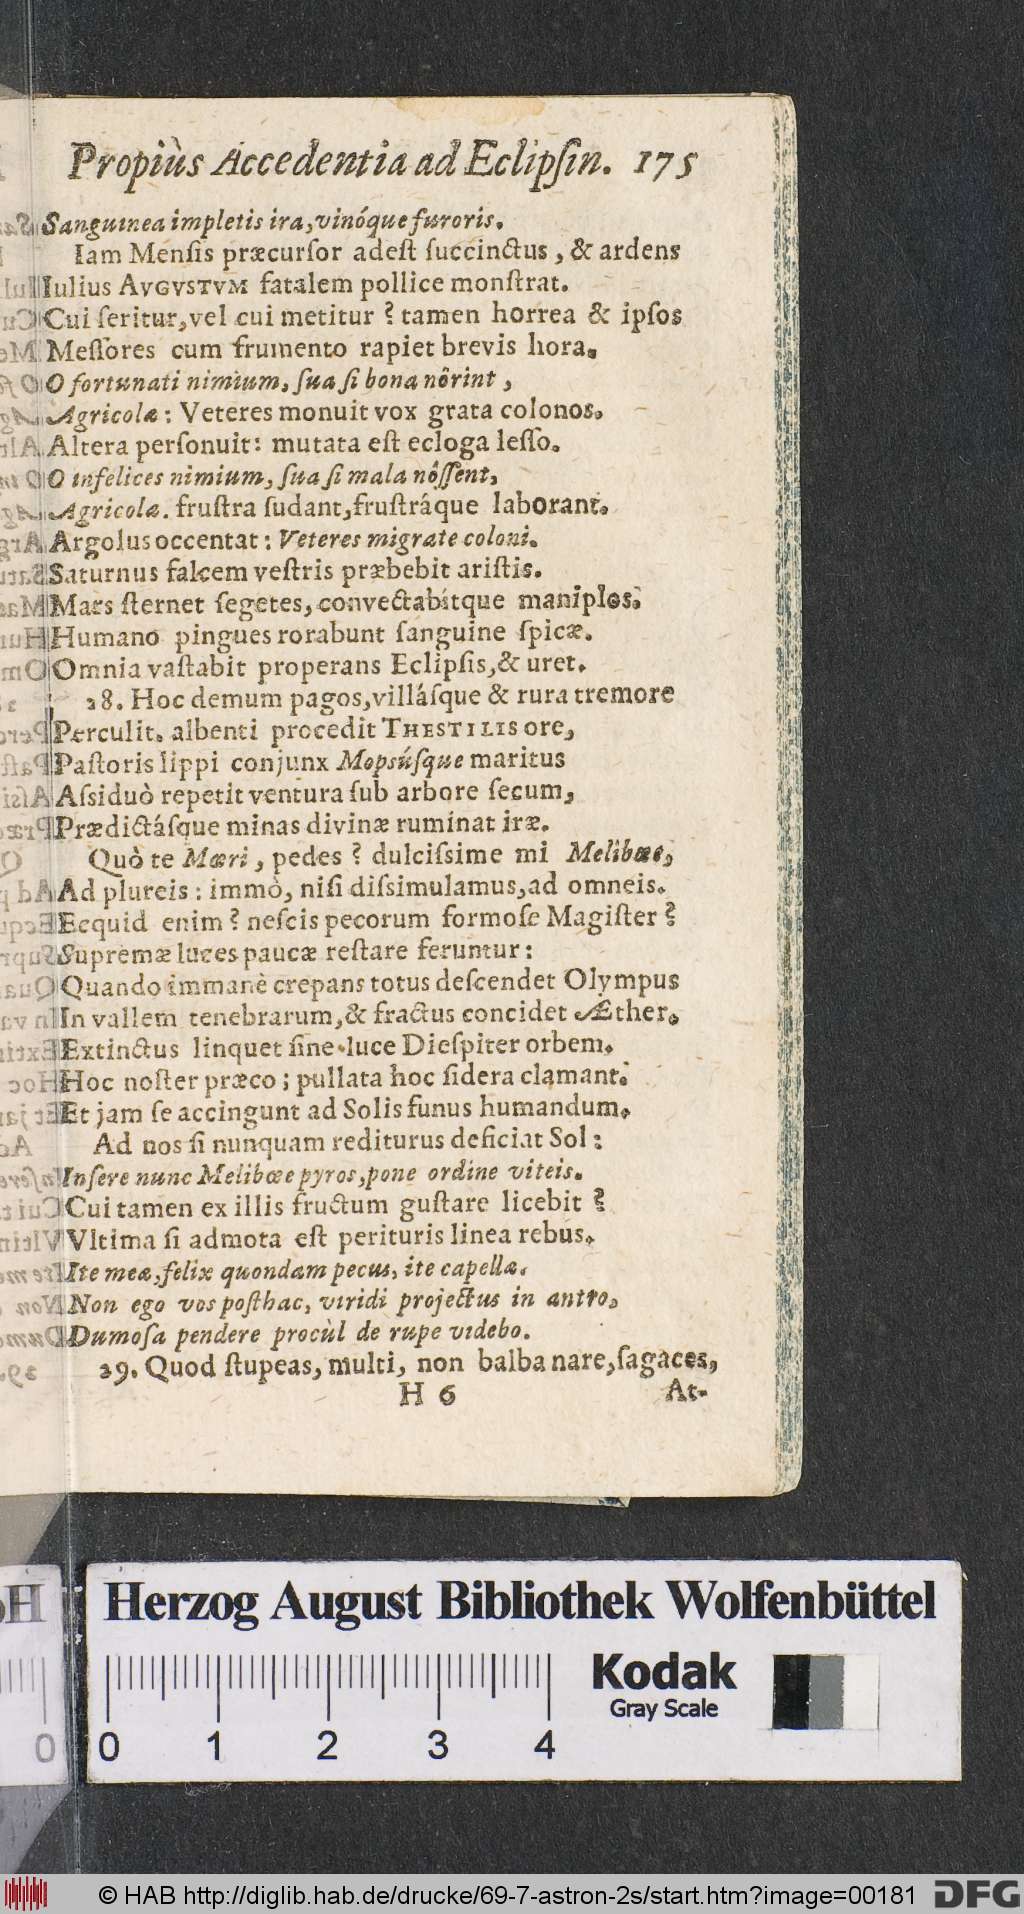 Propiùs Accedentia ad Eclipſin. 175
Sanguinea impletis ira, vinóque furoris.
Iam Menſis præcurſor adeſt ſuccinctus, & ardens
Iulius AVGVSTVM fatalem pollice monſtrat.
Cui ſeritur, vel cui metitur? tamen horrea & ipſos
Meſſores cum frumento rapiet brevis hora.
O fortunati nimium, ſua ſi bona nôrint,
Agricolæ: Veteres monuit vox grata colonos.
Altera perſonuit: mutata eſt ecloga leſſo.
O infelices nimium, ſua ſi mala nôſſent,
Agricolæ. fruſtra ſudant, fruſtráque laborant.
Argolus occentat: Veteres migrate coloni.
Saturnus falcem veſtris præbebit ariſtis.
Mars ſternet ſegetes, convectabítque maniplos.
Humano pingues rorabunt ſanguine ſpicæ.
Omnia vaſtabit properans Eclipſis, & uret.
28. Hoc demum pagos, villáſque & rura tremore
Perculit. albenti procedit THESTILIS ore,
Paſtoris lippi conjunx Mopsúſque maritus
Aſsiduò repetit ventura ſub arbore ſecum,
Prædictáſque minas divinæ ruminat iræ.
Quò te Mæri, pedes? dulciſsime mi Melibœe,
Ad plureis: immò, niſi diſsimulamus, ad omneis.
Ecquid enim? neſcis pecorum formoſe Magiſter?
Supremæ luces paucæ reſtare feruntur:
Quando immanè crepans totus deſcendet Olympus
In vallem tenebrarum, & fractus concidet Æther.
Extinctus linquet ſine luce Dieſpiter orbem.
Hoc noſter præco; pullata hoc ſidera clamant.
Et jam ſe accingunt ad Solis funus humandum.
Ad nos ſi nunquam rediturus deficiat Sol:
Inſere nunc Melibœe pyros, pone ordine viteis.
Cui tamen ex illis fructum guſtare licebit?
Vltima ſi admota eſt perituris linea rebus.
Ite meæ, felix quondam pecus, ite capellæ.
Non ego vos poſthac, viridi projectus in antro,
Dumoſa pendere procùl de rupe videbo.
29. Quod ſtupeas, multi, non balba nare, ſagaces,
H 6 At-
Herzog August Bibliothek Wolfenbüttel
Kodak
Gray Scale
0 0 1 2 3 4
© HAB http://diglib.hab.de/drucke/69-7-astron-2s/start.htm?image=00181 DFG